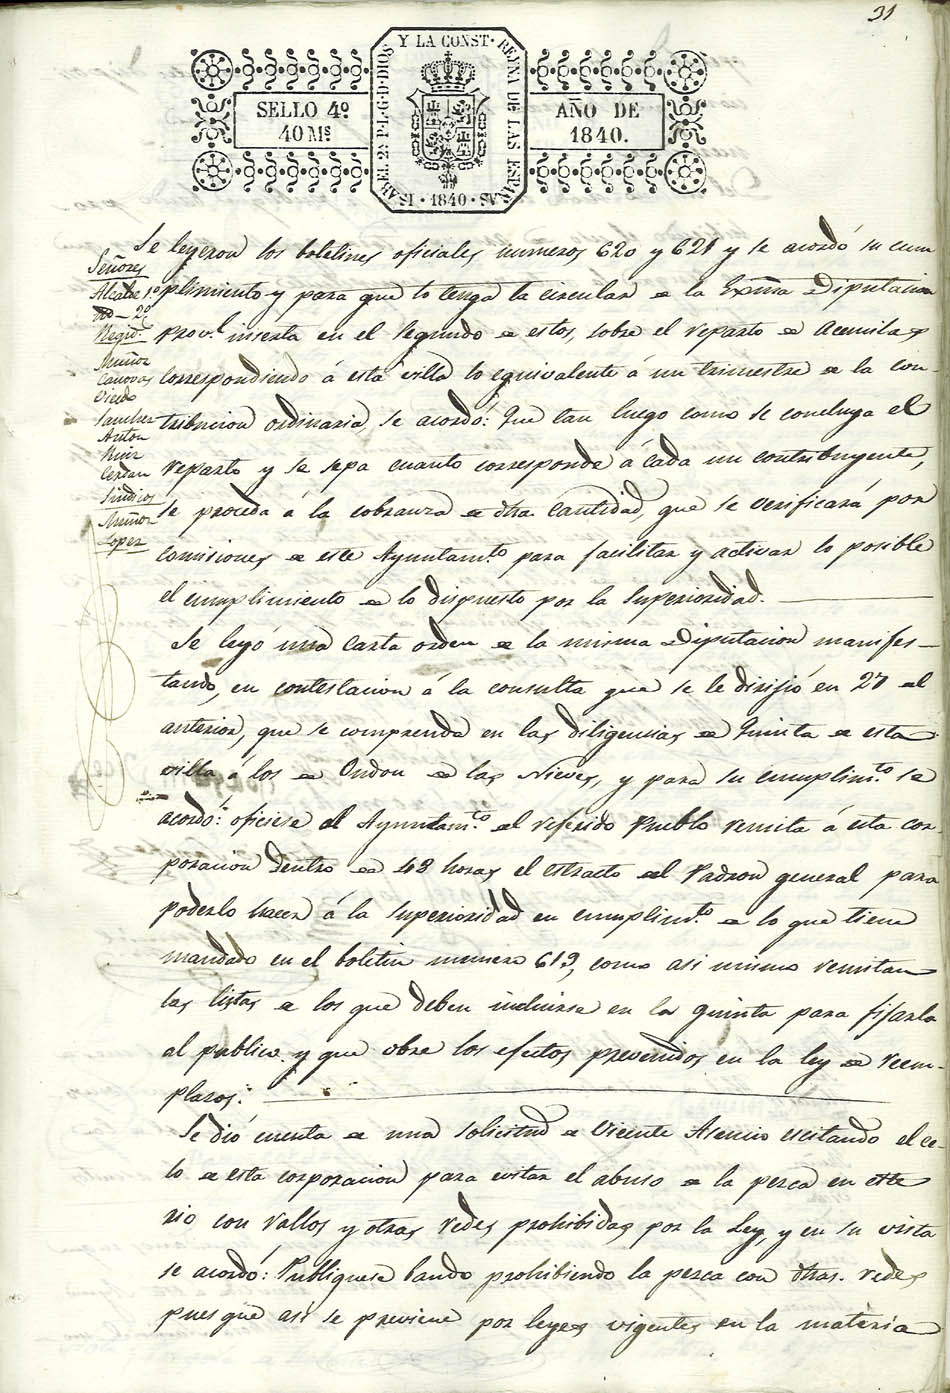 31
SELLO 4º
40 Mˢ
ISABEL 2ª P·L·G·D·DIOS Y LA CONST· REYNA DE LAS ESPAÑAS · 1840 ·
AÑO DE
1840.
Señores
Alcalde 1º
2º
Regid.
Muñoz
Canovas
Oviedo
Sanchez
Anton
Ruiz
Cerdan
Sindicos
Muñoz
Lopez
Se leyeron los boletines oficiales numeros 620 y 621 y se acordó su cum
plimiento y para que lo tenga la circular de la Exma Diputacion
Provl. inserta en el segundo de estos, sobre el reparto de Acemilas
correspondiendo á esta villa lo equivalente á un trimestre de la con-
tribucion ordinaria, se acordó: Que tan luego como se concluya el
reparto y se sepa cuanto corresponde á cada un contribuyente,
se proceda á la cobranza de dha cantidad, que se verificará por
comisiones de este Ayuntamto. para facilitar y activar lo posible
el cumplimiento de lo dispuesto por la Superioridad.
Se leyó una carta orden de la misma Diputacion manifes-
tando, en contestacion á la consulta que se le dirijió en 27 del
anterior, que se comprenda en las diligencias de Quinta de esta
villa á los de Ondon de las Nieves, y para su cumplimto. se
acordó: oficiese al Ayuntamto. del referido Pueblo remita á esta cor-
poracion dentro de 48 horas el estracto del Padron general para
poderlo hacer á la Superioridad en cumplimto. de lo que tiene
mandado en el boletin numero 619, como asi mismo remitan
las listas de los que deben incluirse en la quinta para fijarla
al publico y que obre los efectos prevenidos en la ley de reem-
plazos:
Se dió cuenta de una solicitud de Vicente Asencio escitando el ce-
lo de esta corporacion para evitar el abuso de la pesca en este
rio con vallos y otras redes prohibidas por la Ley, y en su vista
se acordó: Publiquese bando prohibiendo la pesca con dhas. redes
pues que asi se previene por leyes vigentes en la materia